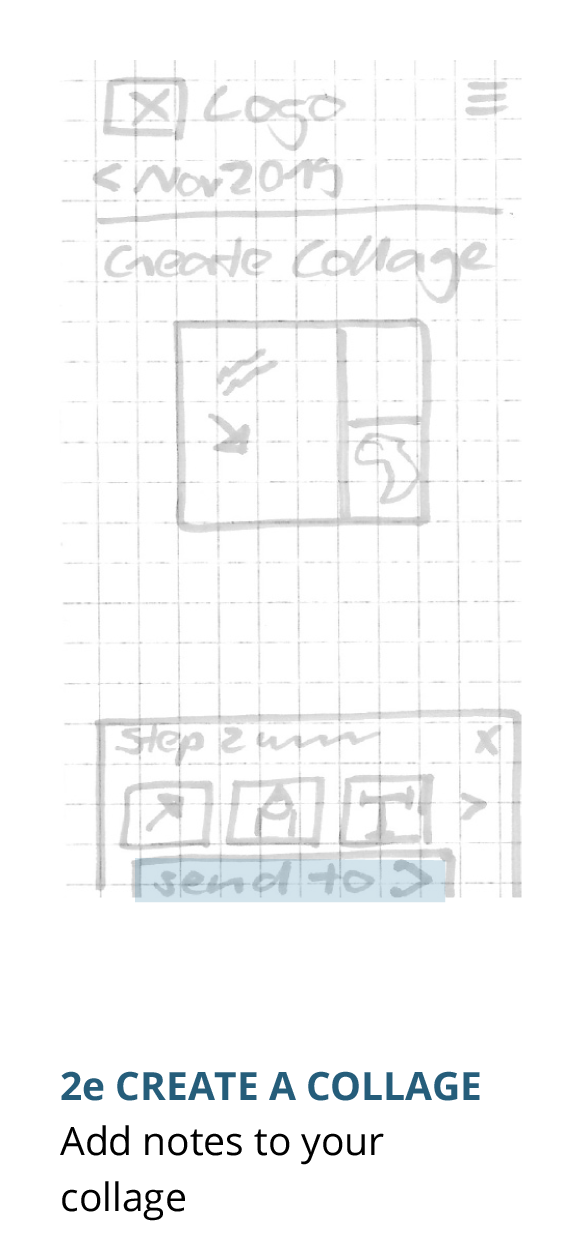 Logo
< Nov 2019
Create Collage
Step 2
x
T
>
send to >
2e CREATE A COLLAGE
Add notes to your
collage